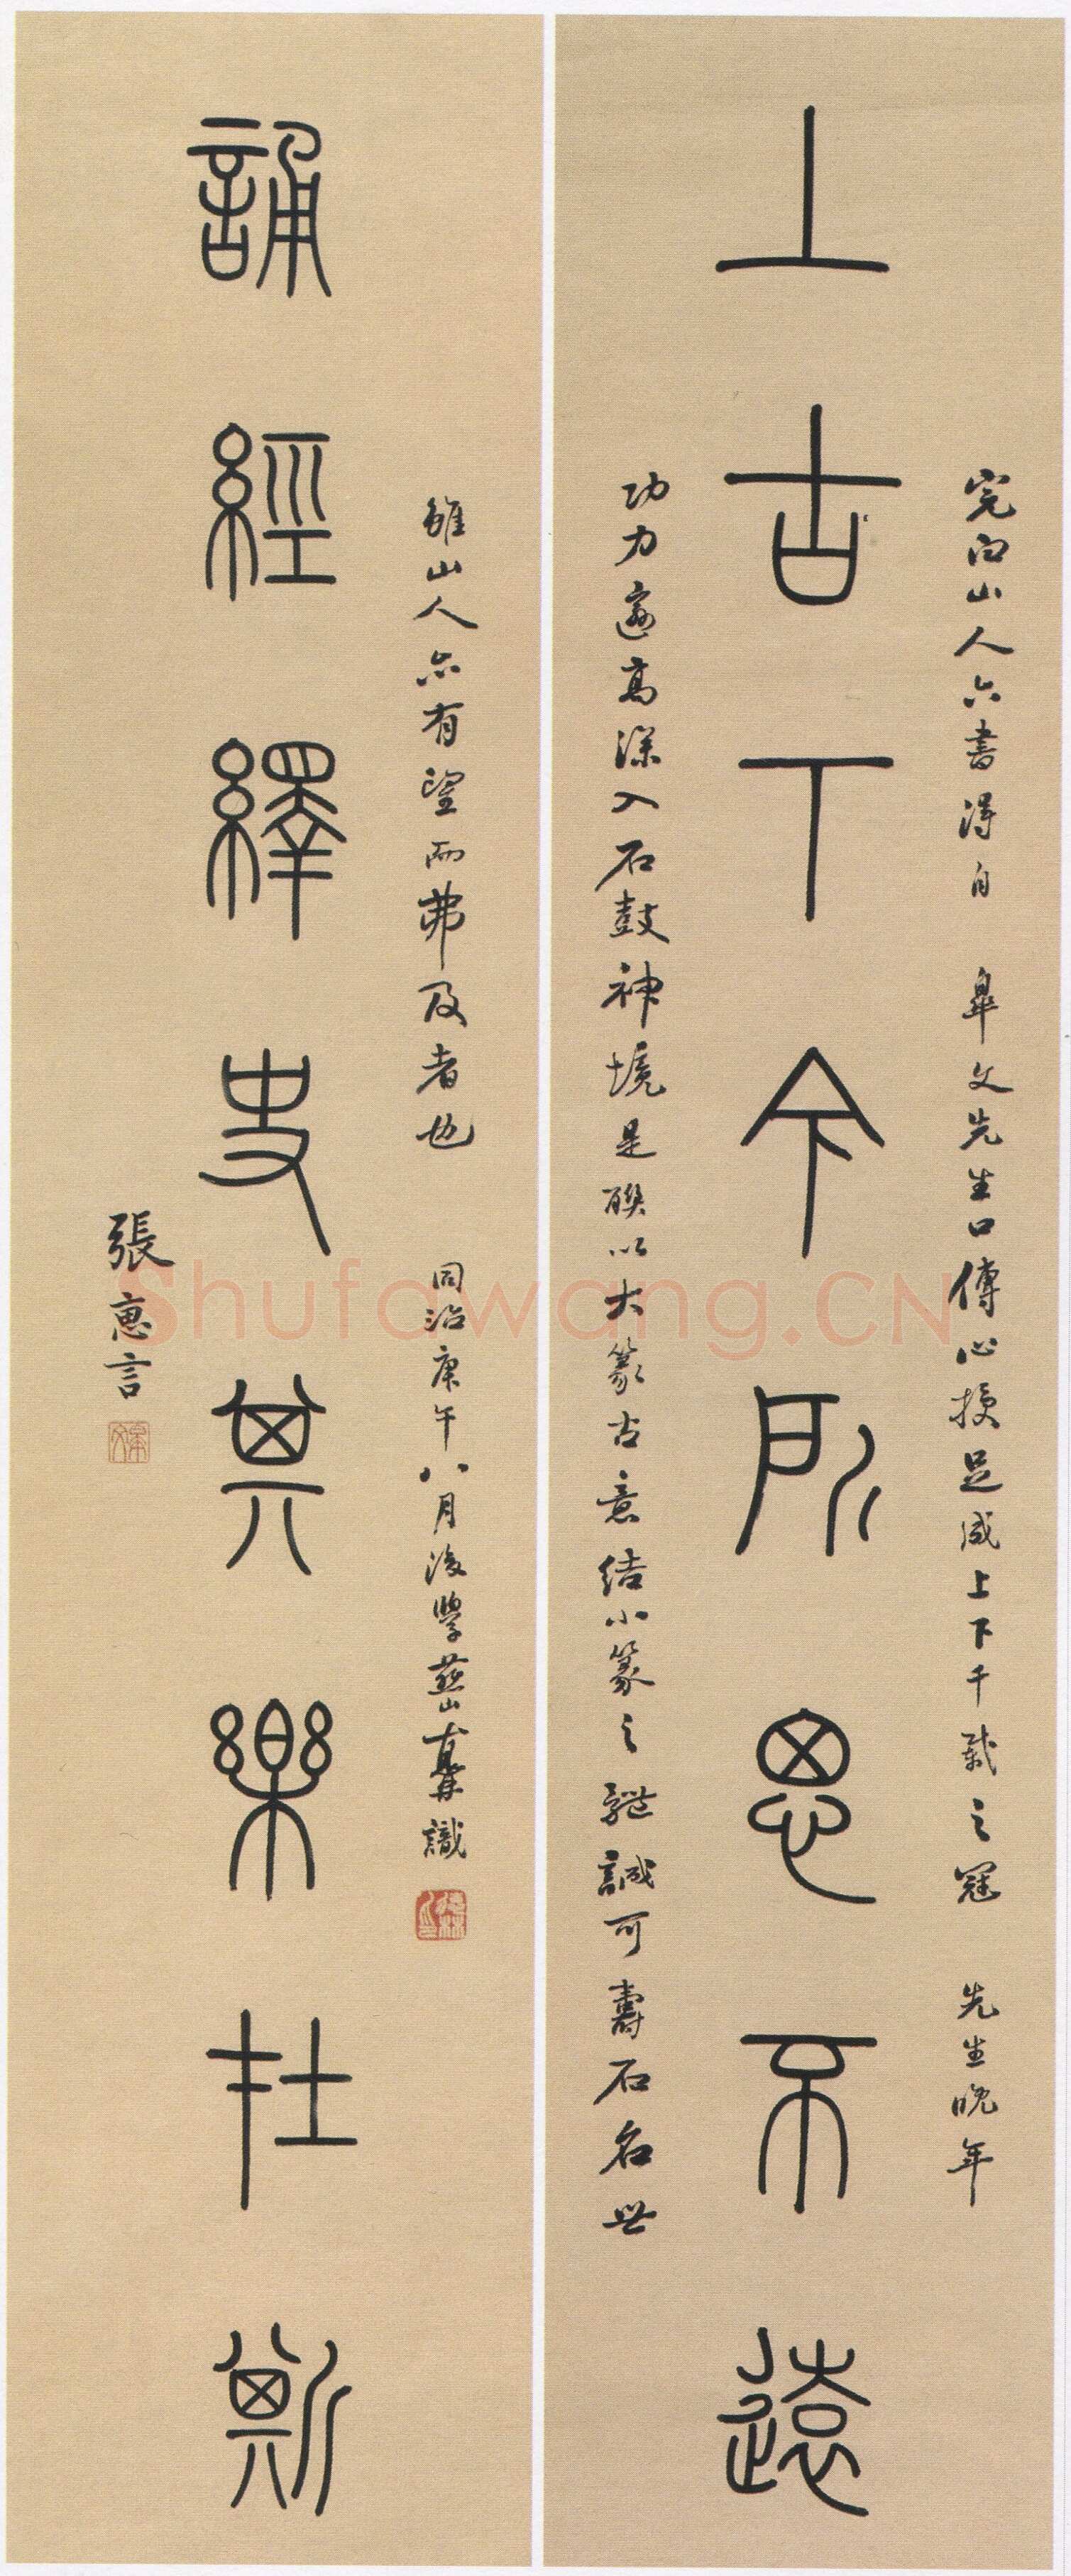 完白山人六書得自 皋文先生口傳心授足成上下千載之冠 先生晚年
上古丅今所思不遠
功力邃高深入石鼓神境是聯以大篆古意結小篆之體誠可壽石名世
雖山人亦有望而弗及者也 同治庚午八月後學燕山識
誦經繹史其樂在斯
張惠言
Shufawang.CN